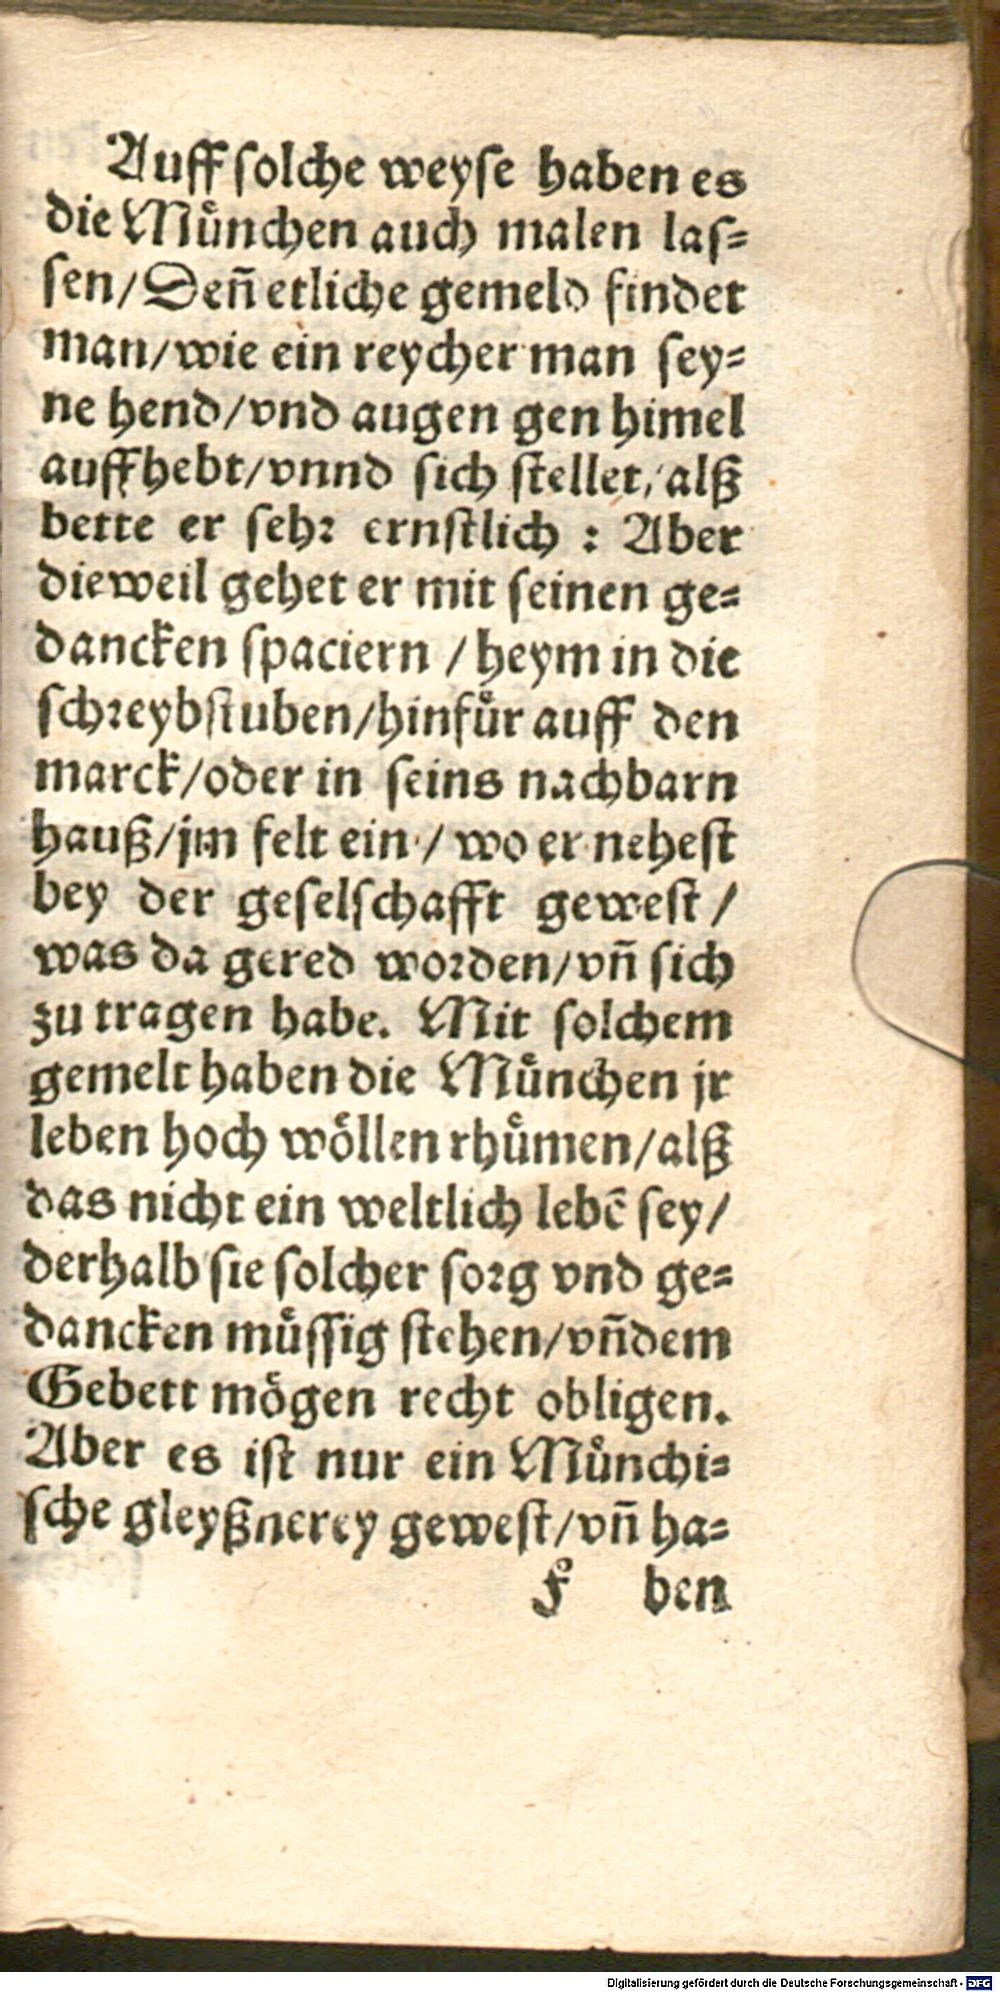 Auff solche weyse haben es
die Mu̓nchen auch malen las⸗
sen/Deñ etliche gemeld findet
man/wie ein reycher man sey⸗
ne hend/vnd augen gen himel
auffhebt/vnnd sich stellet/alß
bette er sehr ernstlich : Aber
dieweil gehet er mit seinen ge⸗
dancken spaciern /heym in die
schreybstuben/hinfür auff den
marck/oder in seins nachbarn
hauß/jm felt ein/ wo er nehest
bey der geselschafft gewest/
was da gered worden/vñ sich
zu tragen habe. Mit solchem
gemelt haben die München jr
leben hoch wöllen rhümen/alß
das nicht ein weltlich lebē sey/
derhalb sie solcher sorg vnd ge⸗
dancken müssig stehen/vñ dem
Gebett mögen recht obligen.
Aber es ist nur ein Münchi⸗
sche gleyßnerey gewest/vñ ha⸗
F ben
Digitalisierung gefördert durch die Deutsche Forschungsgemeinschaft - DFG